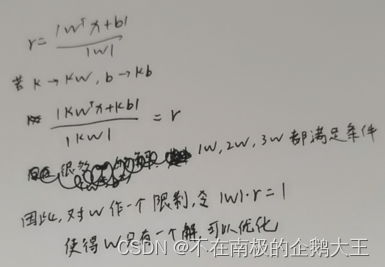 r = |wᵀx+b| / |w|
若 k → kw, b → kb
|kwᵀx+kb| / |kw| = r
1w, 2w, 3w 都满足条件
因此, 对w作一个限制, 令 |w|·r = 1
使得w只有一个解, 可以优化
CSDN @不在南极的企鹅大王